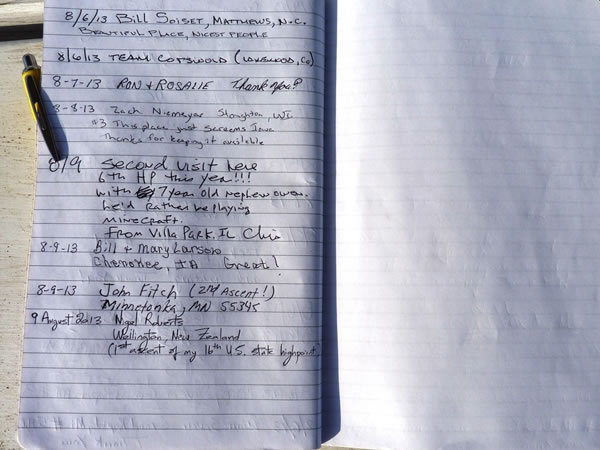 8/6/13 Bill Soiset, Matthews, N.C.
Beautiful Place, Nicest People
8/6/13 Team Cotswold (Lakewood, Co)
8-7-13 Ron & Rosalie Thank You!
8-8-13 Zach Niemeyer Stoughton, WI
#3 This place just screems Iowa
Thanks for keeping it available
8/9 Second visit here
6th HP this year!!!
with 7 year old nephew Owen.
he'd rather be playing
minecraft.
From Villa Park, IL Chris
8-9-13 Bill & Mary Larson
Cherokee, IA Great!
8-9-13 John Fitch (2nd Ascent!)
Minnetonka, MN 55345
9 August 2013 Nigel Roberts
Wellington, New Zealand
(1st ascent of my 16th U.S. state highpoint